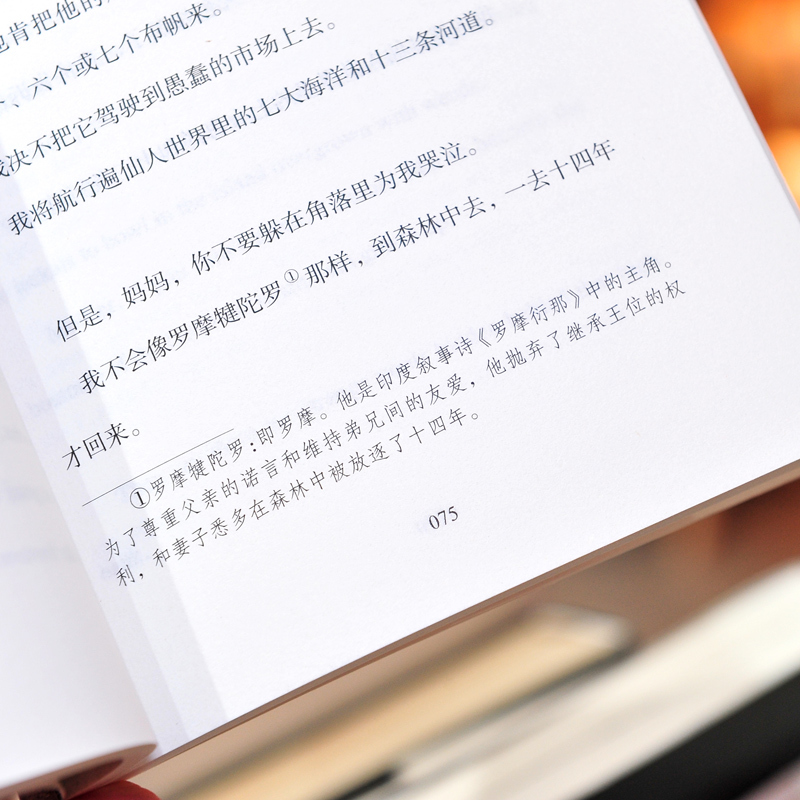 也肯把他的
、六个或七个布帆来。
我决不把它驾驶到愚蠢的市场上去。
我将航行遍仙人世界里的七大海洋和十三条河道。
但是，妈妈，你不要躲在角落里为我哭泣。
我不会像罗摩犍陀罗①那样，到森林中去，一去十四年
才回来。
①罗摩犍陀罗：即罗摩。他是印度叙事诗《罗摩衍那》中的主角。
为了尊重父亲的诺言和维持弟兄间的友爱，他抛弃了继承王位的权
利，和妻子悉多在森林中被放逐了十四年。
075